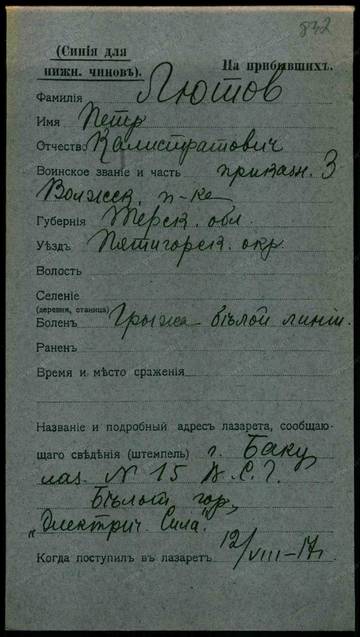 832
(Синія для
нижн. чиновъ).
На прибывшихъ.
Фамилія Лютов
Имя Петр
Отчество Калистратович
Воинское званіе и часть приказн. 3
Волжск. п-ка
Губернія Терск. обл.
Уѣздъ Пятигорск. окр.
Волость
Селеніе
(деревня, станица)
Боленъ Грыжа бѣлой линіи.
Раненъ
Время и мѣсто сраженія
Названіе и подробный адресъ лазарета, сообщаю-
щаго свѣдѣнія (штемпель) г. Баку
лаз. № 15 В. С. Г.
Бѣлот гор.
"Електрич. Сила".
Когда поступилъ въ лазаретъ 12/VIII-17г.